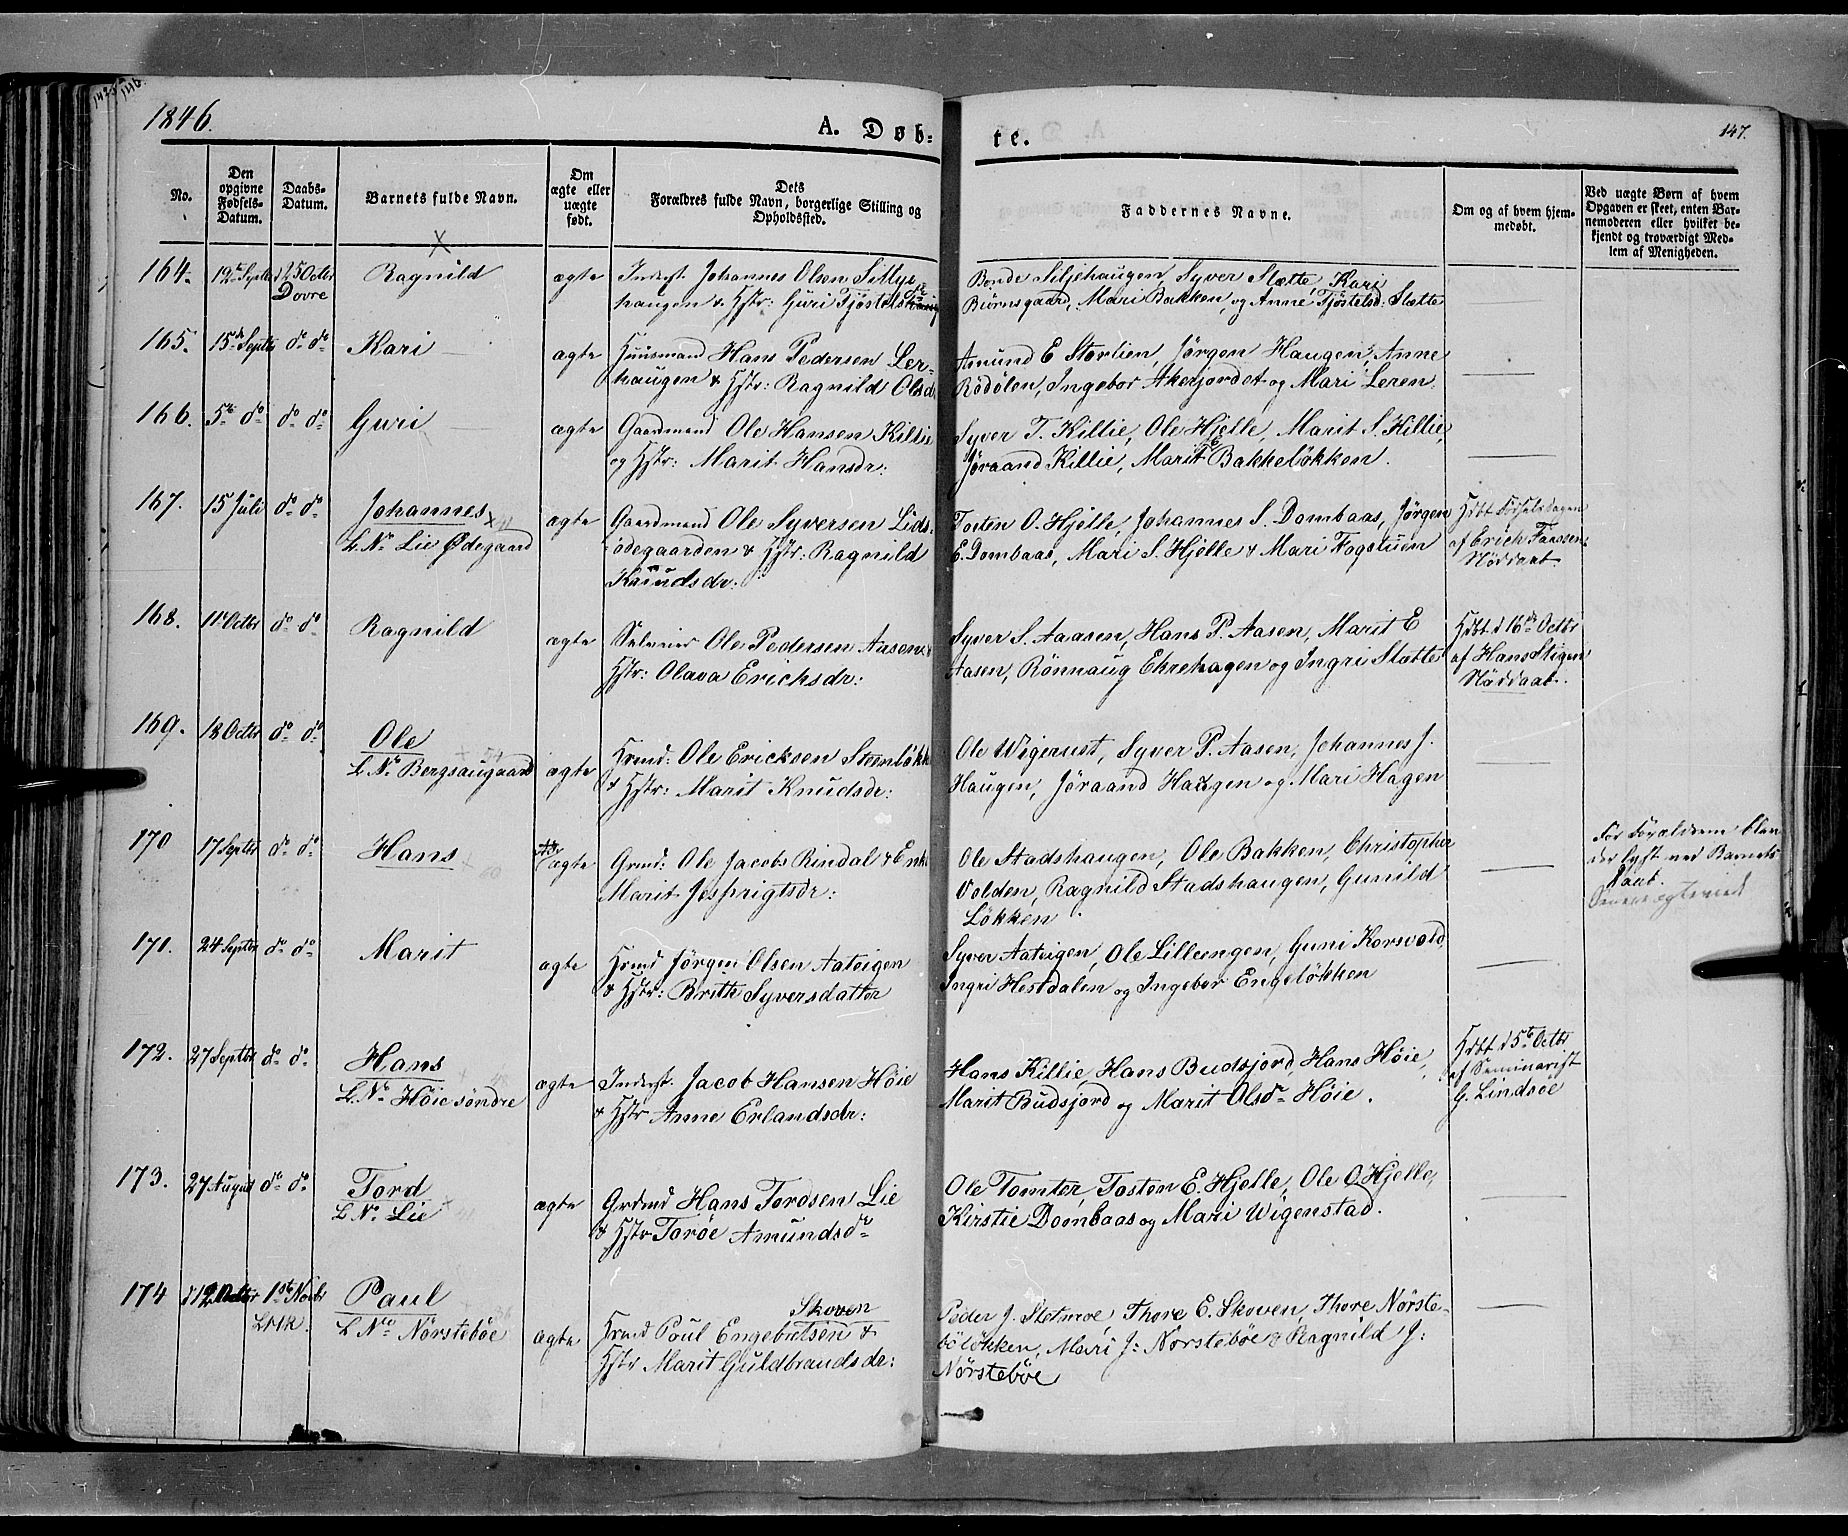 1846.
A. Døb-
te.
147.
No.
Den opgivne Fødsels-Datum.
Daabs-Datum.
Barnets fulde Navn.
Om ægte eller uægte født.
Dets Forældres fulde Navn, borgerlige Stilling og Opholdssted.
Faddernes Navne.
Om og af hvem hjem-medøbt.
Ved uægte Børn af hvem Opgaven er skeet, enten Bar-nemoderen eller hvilket be-kjendt og troværdigt Med-lem af Menigheden.
164. 12te Septr d 25 Octbr Ragnild ægte Inderst. Johannes Olsen
Dovre
haugen & Hstr: Guri
Bonde Siljehaugen, Syver Slætte, Kari
Biørnsgaard, Mari Bakken, og Anne Tjøstelsd: Slætte
165. 15de Septbr do do Kari ægte Huusmand Hans Pedersen Ler-
haugen & Hstr: Ragnild Olsd.
Amund E Storlien, Jørgen Haugen, Anne
Rødølen, Ingebor Akerjordet og Mari Leren.
166. 5te do do do Guri ægte Gaardmand Ole Hansen Killie
og Hstr: Marit Hansdr:
Syver T. Killie, Ole Hjelle, Marit S. Killie,
Jøraand Killie, Marit Bakkeløkken.
167. 15 Juli do do Johannes ægte Gaardmand Ole Syversen Lids-
L. No Lie Ødegaard
ødegaarden & Hstr: Ragnild
Knudsdr:
Tosten O. Hjelle, Johannes S. Dombaas, Jørgen
E. Dombaas, Mari S. Hjelle & Mari Fogstuen
Hdbt Fødselsdagen
af Erich
Nøddaab.
168. 11 Octbr do do Ragnild ægte Selveier Ole Pedersen Aasen &
Hstr: Olava Ericksdr:
Syver S. Aaasen, Hans P. Aasen, Marit E
Aasen, Rønnaug Ekrehagen og Ingri Slætte
Hdbt d 16de Octbr
af Hans Stigen
Nøddaab.
169. 18 Octbr do do Ole ægte Hmd: Ole Ericksen Steenløkk
L. No Bergsaugaard
& Hstr: Marit Knudsdr:
Ole Wigerust, Syver P. Aasen, Johannes J.
Haugen, Jøraand Haugen og Mari Hagen
170 17 Septbr do do Hans ægte Grmd: Ole Jacobs Rindal & Enke
Marit
Ole Stadshaugen, Ole Bakken, Christopher
Volden, Ragnild Stadshaugen, Gunild
Løkken.
For Forældrene blev
der lyst ved Barnets
Daab.
171. 24 Septbr do do Marit ægte Hmd Jørgen Olsen Aateigen
& Hstr: Brith Syversdatter
Syver Aateigen, Ole Lillengen, Guni Korsvold
Ingri Hestdalen og Ingebor Engeløkken
172. 27 Septbr do do Hans ægte Inderst. Jacob Hansen Høie
L. No Høie søndre
& Hstr Anne Erlandsdr:
Hans Killie, Hans Budsjord, Hans Høie,
Marit Budsjord og Marit Olsdr Høie.
Hdbt d 5te Octbr
af Seminarist
G. Lindsøe
173. 27 August do do Tord ægte Grdmd Hans Tordsen Lie
L No Lie
& Hstr Torøe Amundsdr
Ole Tomter, Tosten E. Hjelle, Ole O. Hjelle,
Kirstie Dombaas og Mari Wigenstad.
174 d 12 Octbr 1ste Novbr Paul ægte Hmd Poul Engebretsen Skoven &
L No Nørstebøe
Hstr Marit Guldbrandsdr:
Peder J. Thore E. Skoven, Thore Nørste-
bøløkken, Mari J: Nørstebøe & Ragnild J:
Nørstebøe